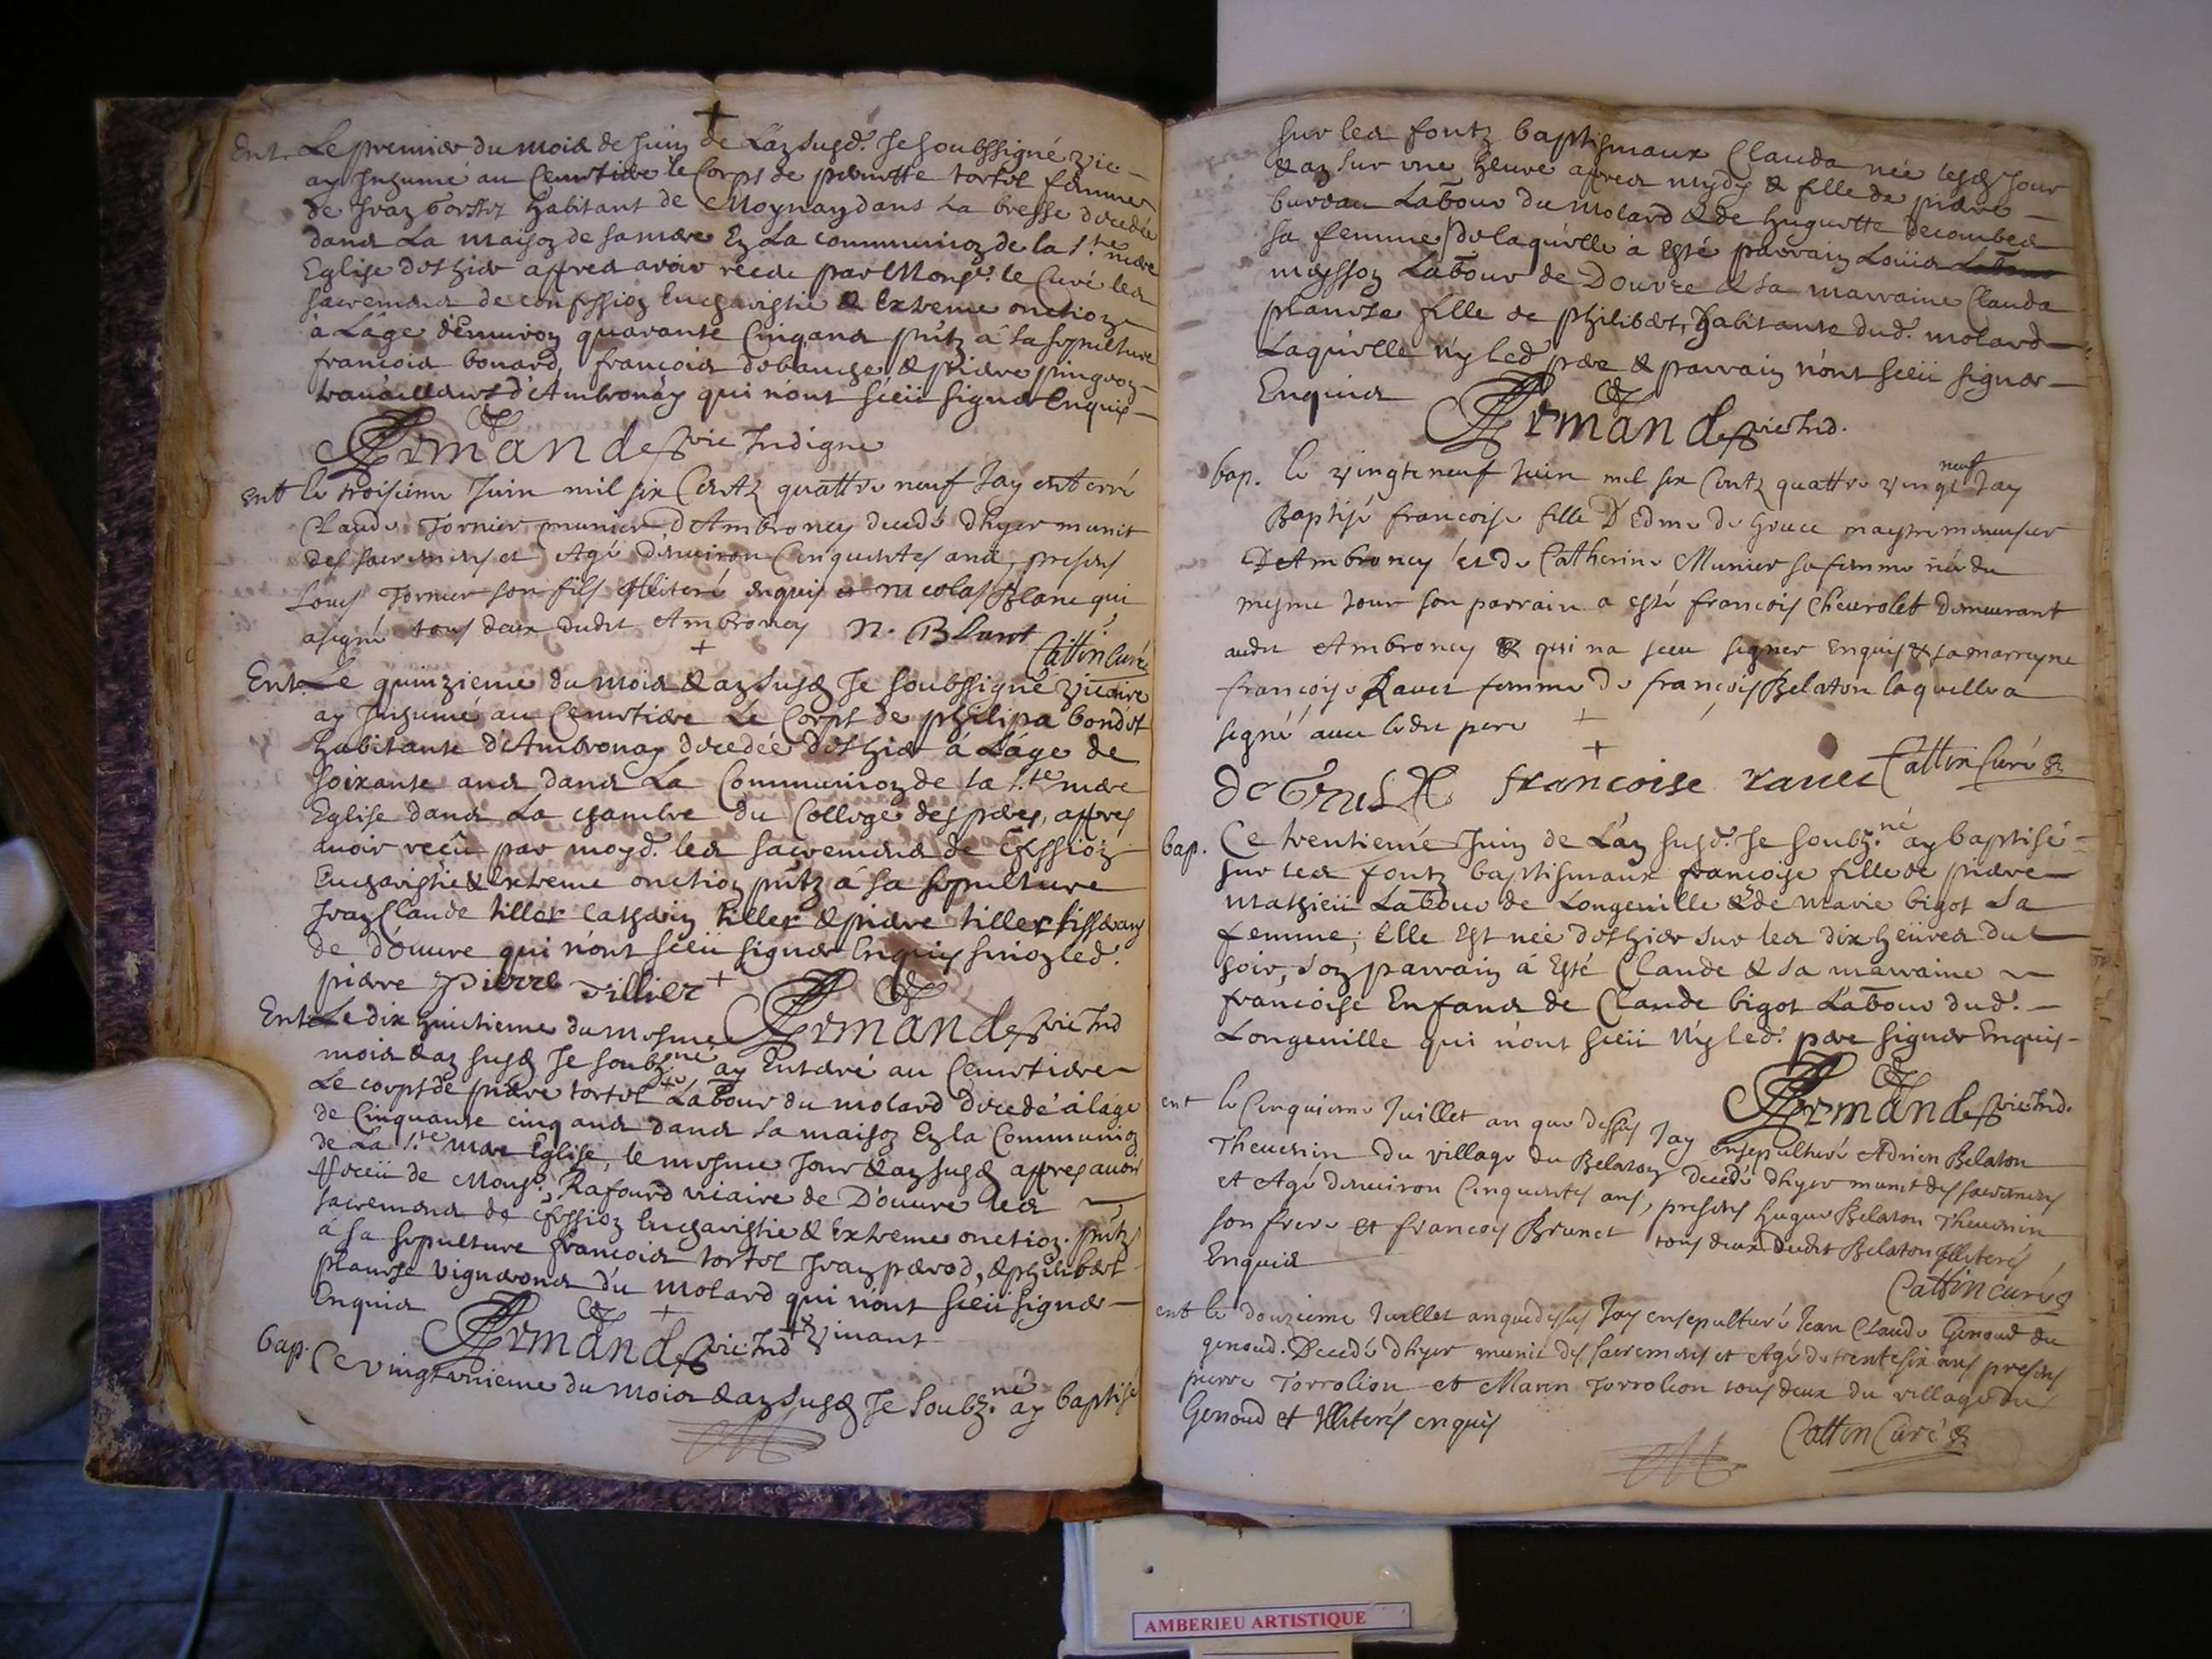 Ent. Le premier du mois de Juin de L'an susd. Je soubssigné vic
ay Inhumé au Cemetiere le Corps de pernette tortel femme
de Jean habitant de Moynay dans La bresse decedée
dans La maison de sa mere En La communion de la Ste mere
Eglise dethier apprès avoir receu par Monsr. le Curé les
sacremens de confession Eucharistie & Extreme onction
à L'âge d'environ quarante Cinq ans pntz â sa sepulture
françois bonard, françois & piere pingeon
travailleurs d'Ambronay qui n'ont sceü signer Enquis
Armand vic Indigne
ent le troisieme Juin mil six Centz quattre neuf Jay enterré
Claude Tornier munier d'Ambroney decedé dhyer munit
des sacremens et Agé d'environ Cinquantes ans, presens
Louys Tornier son fils Illiteré enquis et nicolas Blanc qui
a signé tous deux dudit Ambroney N. Blanct
Cattin Curé
Ent. Le quinzieme du mois & an susd Je soubssigné vicaire
ay Inhumé au Cemetiere Le Corps de philipa bondet
habitante d'Ambronay decedée dethier â L'âge de
soixante ans dans La Communion de la Ste mere
Eglise dans La chambre du College des peres, apprès
avoir reçû par moyd. les sacremens de Cfession
Eucharistie & Extreme onction pntz â sa sepulture
Jean Claude tiller Cathein tiller & piere tiller tisserans
de d'ouvre qui n'ont sceü signer Enquis sinon led.
piere Pierre Tillier
Armand vic Ind
Ent. Le dix huictieme du mesme
mois & an susd Je soubz.né ay Enterré au Cemetiere
Le corps de piere tortel Labour du molard decedé â lâge
de Cinquante cinq ans dans sa maison En la Communion
de La Ste mere Eglise, le mesme Jour & an susd apprès avoir
receü de Monsr. Rafourd vicaire de D'ouvre les
sacremens de Cfession Eucharistie & Extreme onction. pntz
â sa sepulture françois tortel Jean perod, & philibert
plantze vignerons du molard qui n'ont sceü signer
Enquis
Armand vic Ind
bap. Ce vingt unieme du mois & an susd Je soubz.né ay baptisé
sur les fontz baptismaux Clauda née lesd Jour
& an sur une heure aprés mydy & fille de piere
burdan Labour du molard & de huguette decombes
sa femme, de laquelle â Esté parrain Loüis
meysson Labour de Douvre & sa marraine Clauda
plantze fille de philibert, habitante dud. molard
Laquelle ny led pere & parrain n'ont sceü signer
Enquis
Armand vic Ind.
bap. le vingte neuf Juin mil six Centz quattre vingt neuf Jay
Baptisé francoise fille D'Edme de Gruce maystre menusier
D'Ambroney et de Catherine Munier sa femme née du
mesme Jour son parrain a esté francois Chevrolet demeurant
audit Ambroney & qui na sceu signer enquis & sa marreyne
françoise Ravet femme de françois Belaton laquelle a
signé avec ledit pere
francoise ravet Cattin Curé
bap. Ce trentiemé Juin de L'an susd. Je soubz.né ay baptisé
sur les fontz baptismaux francoise fille de piere
mathieü Labour de Longeville & de Marie bigot sa
femme; Elle Est née dethier sur les dix heüres du
soir, son parrain â Esté Claude & sa marraine
francoise Enfans de Claude bigot Labour dud.
Longeville qui n'ont sceü ny led. pere signer Enquis
Armand vic Ind.
ent le Cinquieme Juillet an que dessus Jay ensepulturé Adrien Belaton
Thevenin du village du Belaton decedé dhyer munit des sacremens
et Agé denviron Cinquantes ans, presens hugue Belaton Thevenin
son frere et francois Brunet tous deux dudit Belaton Illiterés
Enquis
Cattin curé
ent le douzieme Juillet an que dessus Jay ensepulturé Jean Claude Genoud du
genoud. Decedé dhyer munit des sacremens et Agé de trente six ans presens
pierre Torrolion et Marin Torrolion tous deux du village du
Genoud et Illiterés enquis
Cattin Curé
AMBERIEU ARTISTIQUE